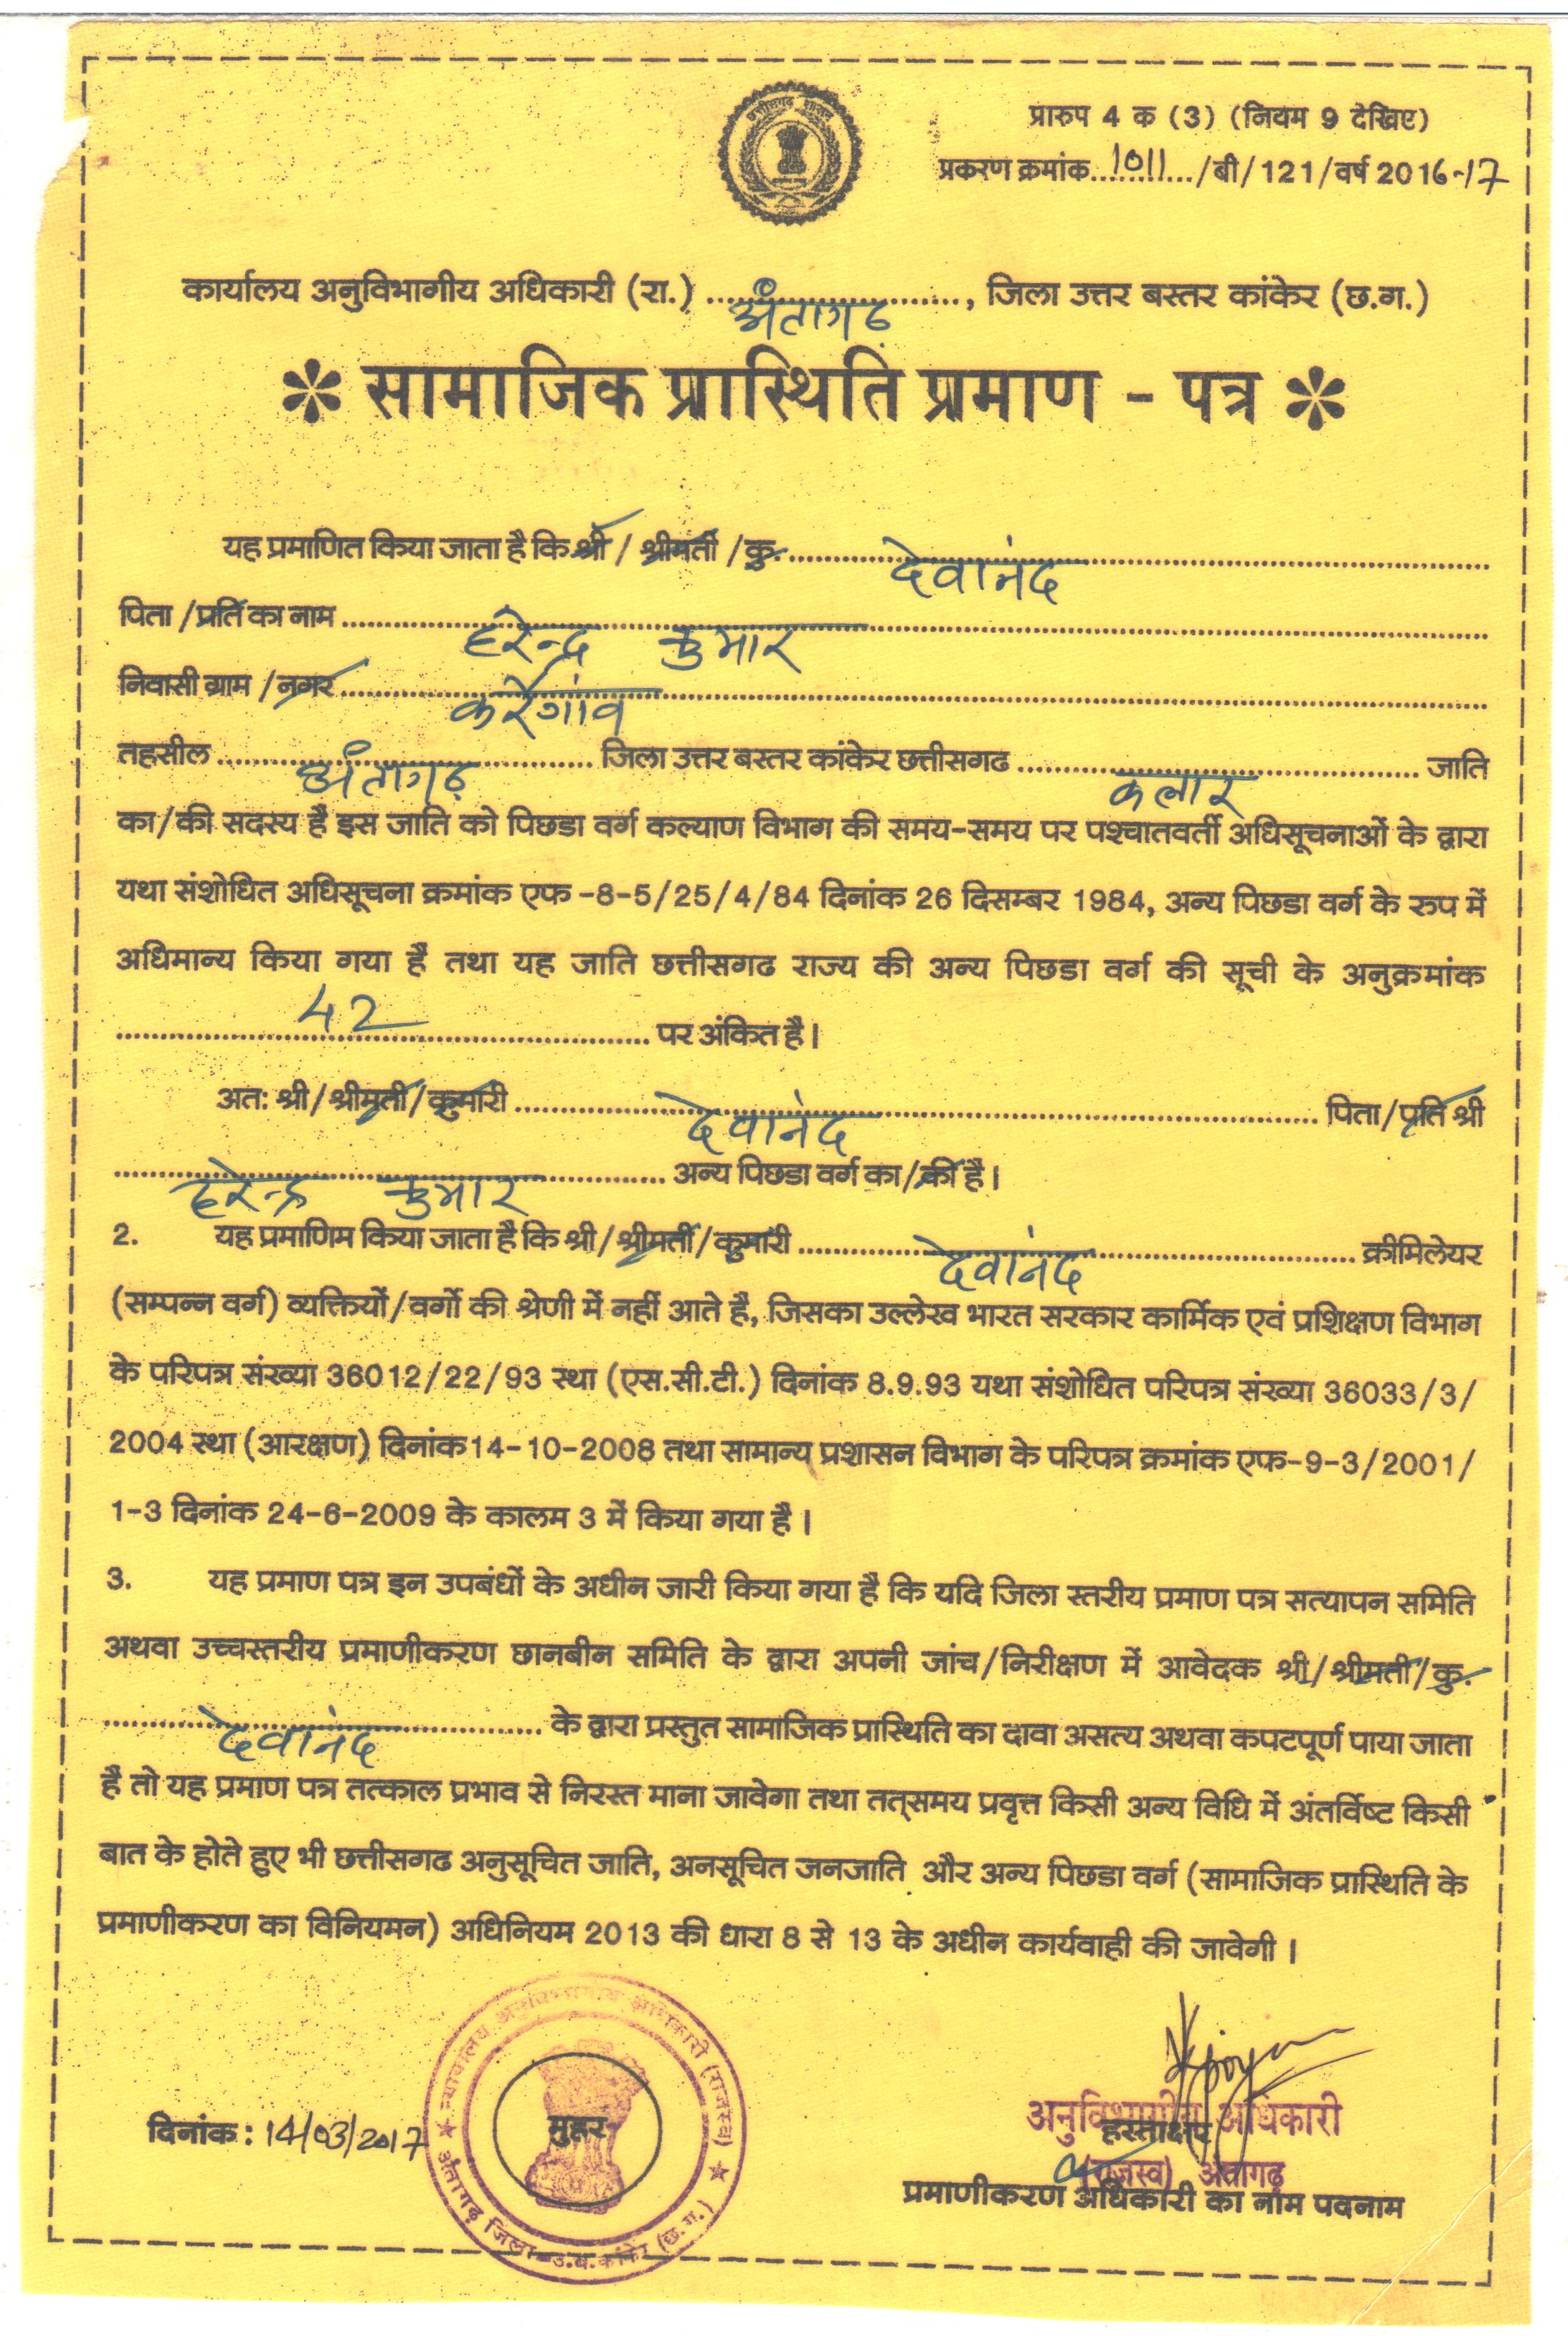 प्रारुप 4 क (3) (नियम 9 देखिए)
प्रकरण क्रमांक..1011.../बी/121/वर्ष 2016-17
कार्यालय अनुविभागीय अधिकारी (रा.) ..अंतागढ.., जिला उत्तर बस्तर कांकेर (छ.ग.)
* सामाजिक प्रास्थिति प्रमाण - पत्र *
यह प्रमाणित किया जाता है कि श्री / श्रीमती / कु. ..देवानंद..
पिता / प्रति का नाम ..हरेन्द्र कुमार..
निवासी ग्राम / नगर ..कर्रेगांव..
तहसील ..अंतागढ़.. जिला उत्तर बस्तर कांकेर छत्तीसगढ ..कलार.. जाति
का/की सदस्य है इस जाति को पिछडा वर्ग कल्याण विभाग की समय-समय पर पश्चातवर्ती अधिसूचनाओं के द्वारा
यथा संशोधित अधिसूचना क्रमांक एफ -8-5/25/4/84 दिनांक 26 दिसम्बर 1984, अन्य पिछडा वर्ग के रुप में
अधिमान्य किया गया है तथा यह जाति छत्तीसगढ राज्य की अन्य पिछडा वर्ग की सूची के अनुक्रमांक
..42.. पर अंकित है।
अत: श्री/श्रीमती/कुमारी ..देवानंद.. पिता/प्रति श्री
..हरेन्द्र कुमार.. अन्य पिछडा वर्ग का/की है।
2. यह प्रमाणिम किया जाता है कि श्री/श्रीमती/कुमारी ..देवानंद.. क्रीमिलेयर
(सम्पन्न वर्ग) व्यक्तियों/वर्गो की श्रेणी में नहीं आते है, जिसका उल्लेख भारत सरकार कार्मिक एवं प्रशिक्षण विभाग
के परिपत्र संख्या 36012/22/93 स्था (एस.सी.टी.) दिनांक 8.9.93 यथा संशोधित परिपत्र संख्या 36033/3/
2004 स्था (आरक्षण) दिनांक 14-10-2008 तथा सामान्य प्रशासन विभाग के परिपत्र क्रमांक एफ-9-3/2001/
1-3 दिनांक 24-6-2009 के कालम 3 में किया गया है।
3. यह प्रमाण पत्र इन उपबंधों के अधीन जारी किया गया है कि यदि जिला स्तरीय प्रमाण पत्र सत्यापन समिति
अथवा उच्चस्तरीय प्रमाणीकरण छानबीन समिति के द्वारा अपनी जांच/निरीक्षण में आवेदक श्री/श्रीमती/कु.
..देवानंद.. के द्वारा प्रस्तुत सामाजिक प्रास्थिति का दावा असत्य अथवा कपटपूर्ण पाया जाता
है तो यह प्रमाण पत्र तत्काल प्रभाव से निरस्त माना जावेगा तथा तत्समय प्रवृत्त किसी अन्य विधि में अंतर्विष्ट किसी
बात के होते हुए भी छत्तीसगढ अनुसूचित जाति, अनसूचित जनजाति और अन्य पिछडा वर्ग (सामाजिक प्रास्थिति के
प्रमाणीकरण का विनियमन) अधिनियम 2013 की धारा 8 से 13 के अधीन कार्यवाही की जावेगी।
न्यायालय अनुविभागीय अधिकारी (राजस्व)
अंतागढ़ जिला-उ.ब.कांकेर (छ.ग.)
मुहर
दिनांक : 14/03/2017
अनुविभागीय अधिकारी
हस्ताक्षर
(राजस्व) अंतागढ़
प्रमाणीकरण अधिकारी का नाम पदनाम